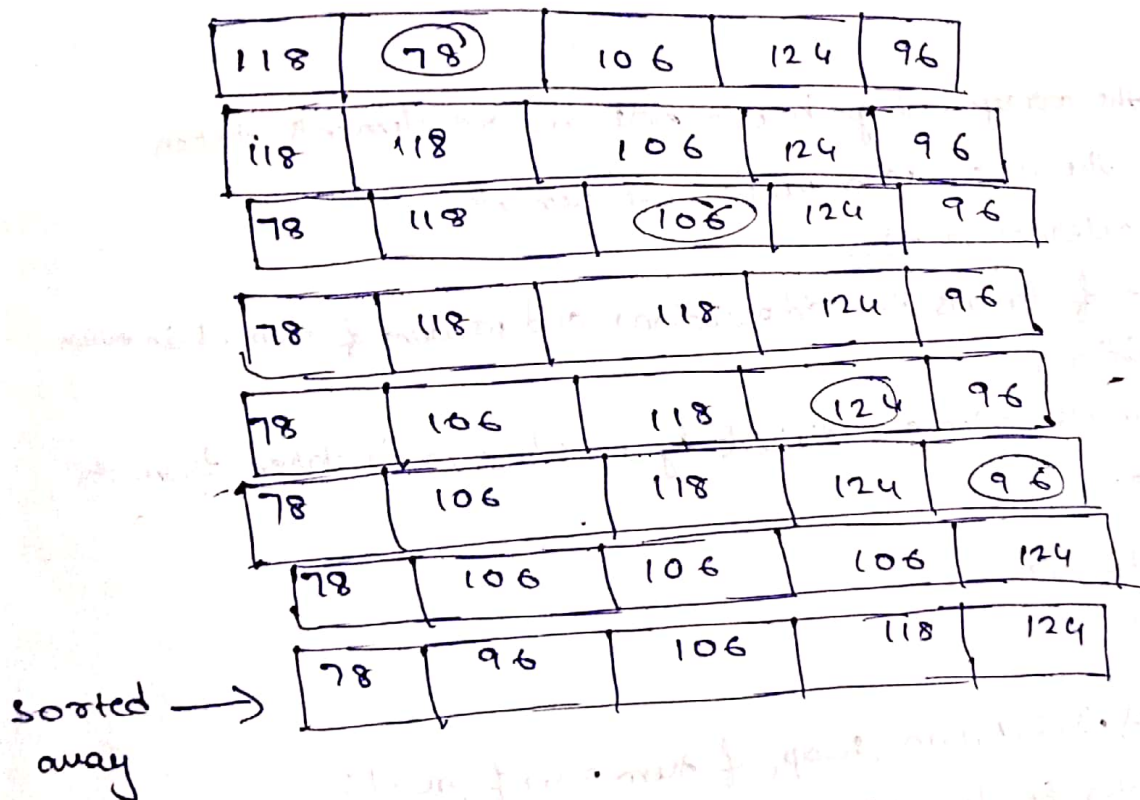 118 78 106 124 96
118 118 106 124 96
78 118 106 124 96
78 118 118 124 96
78 106 118 124 96
78 106 118 124 96
78 106 106 106 124
78 96 106 118 124
sorted
array